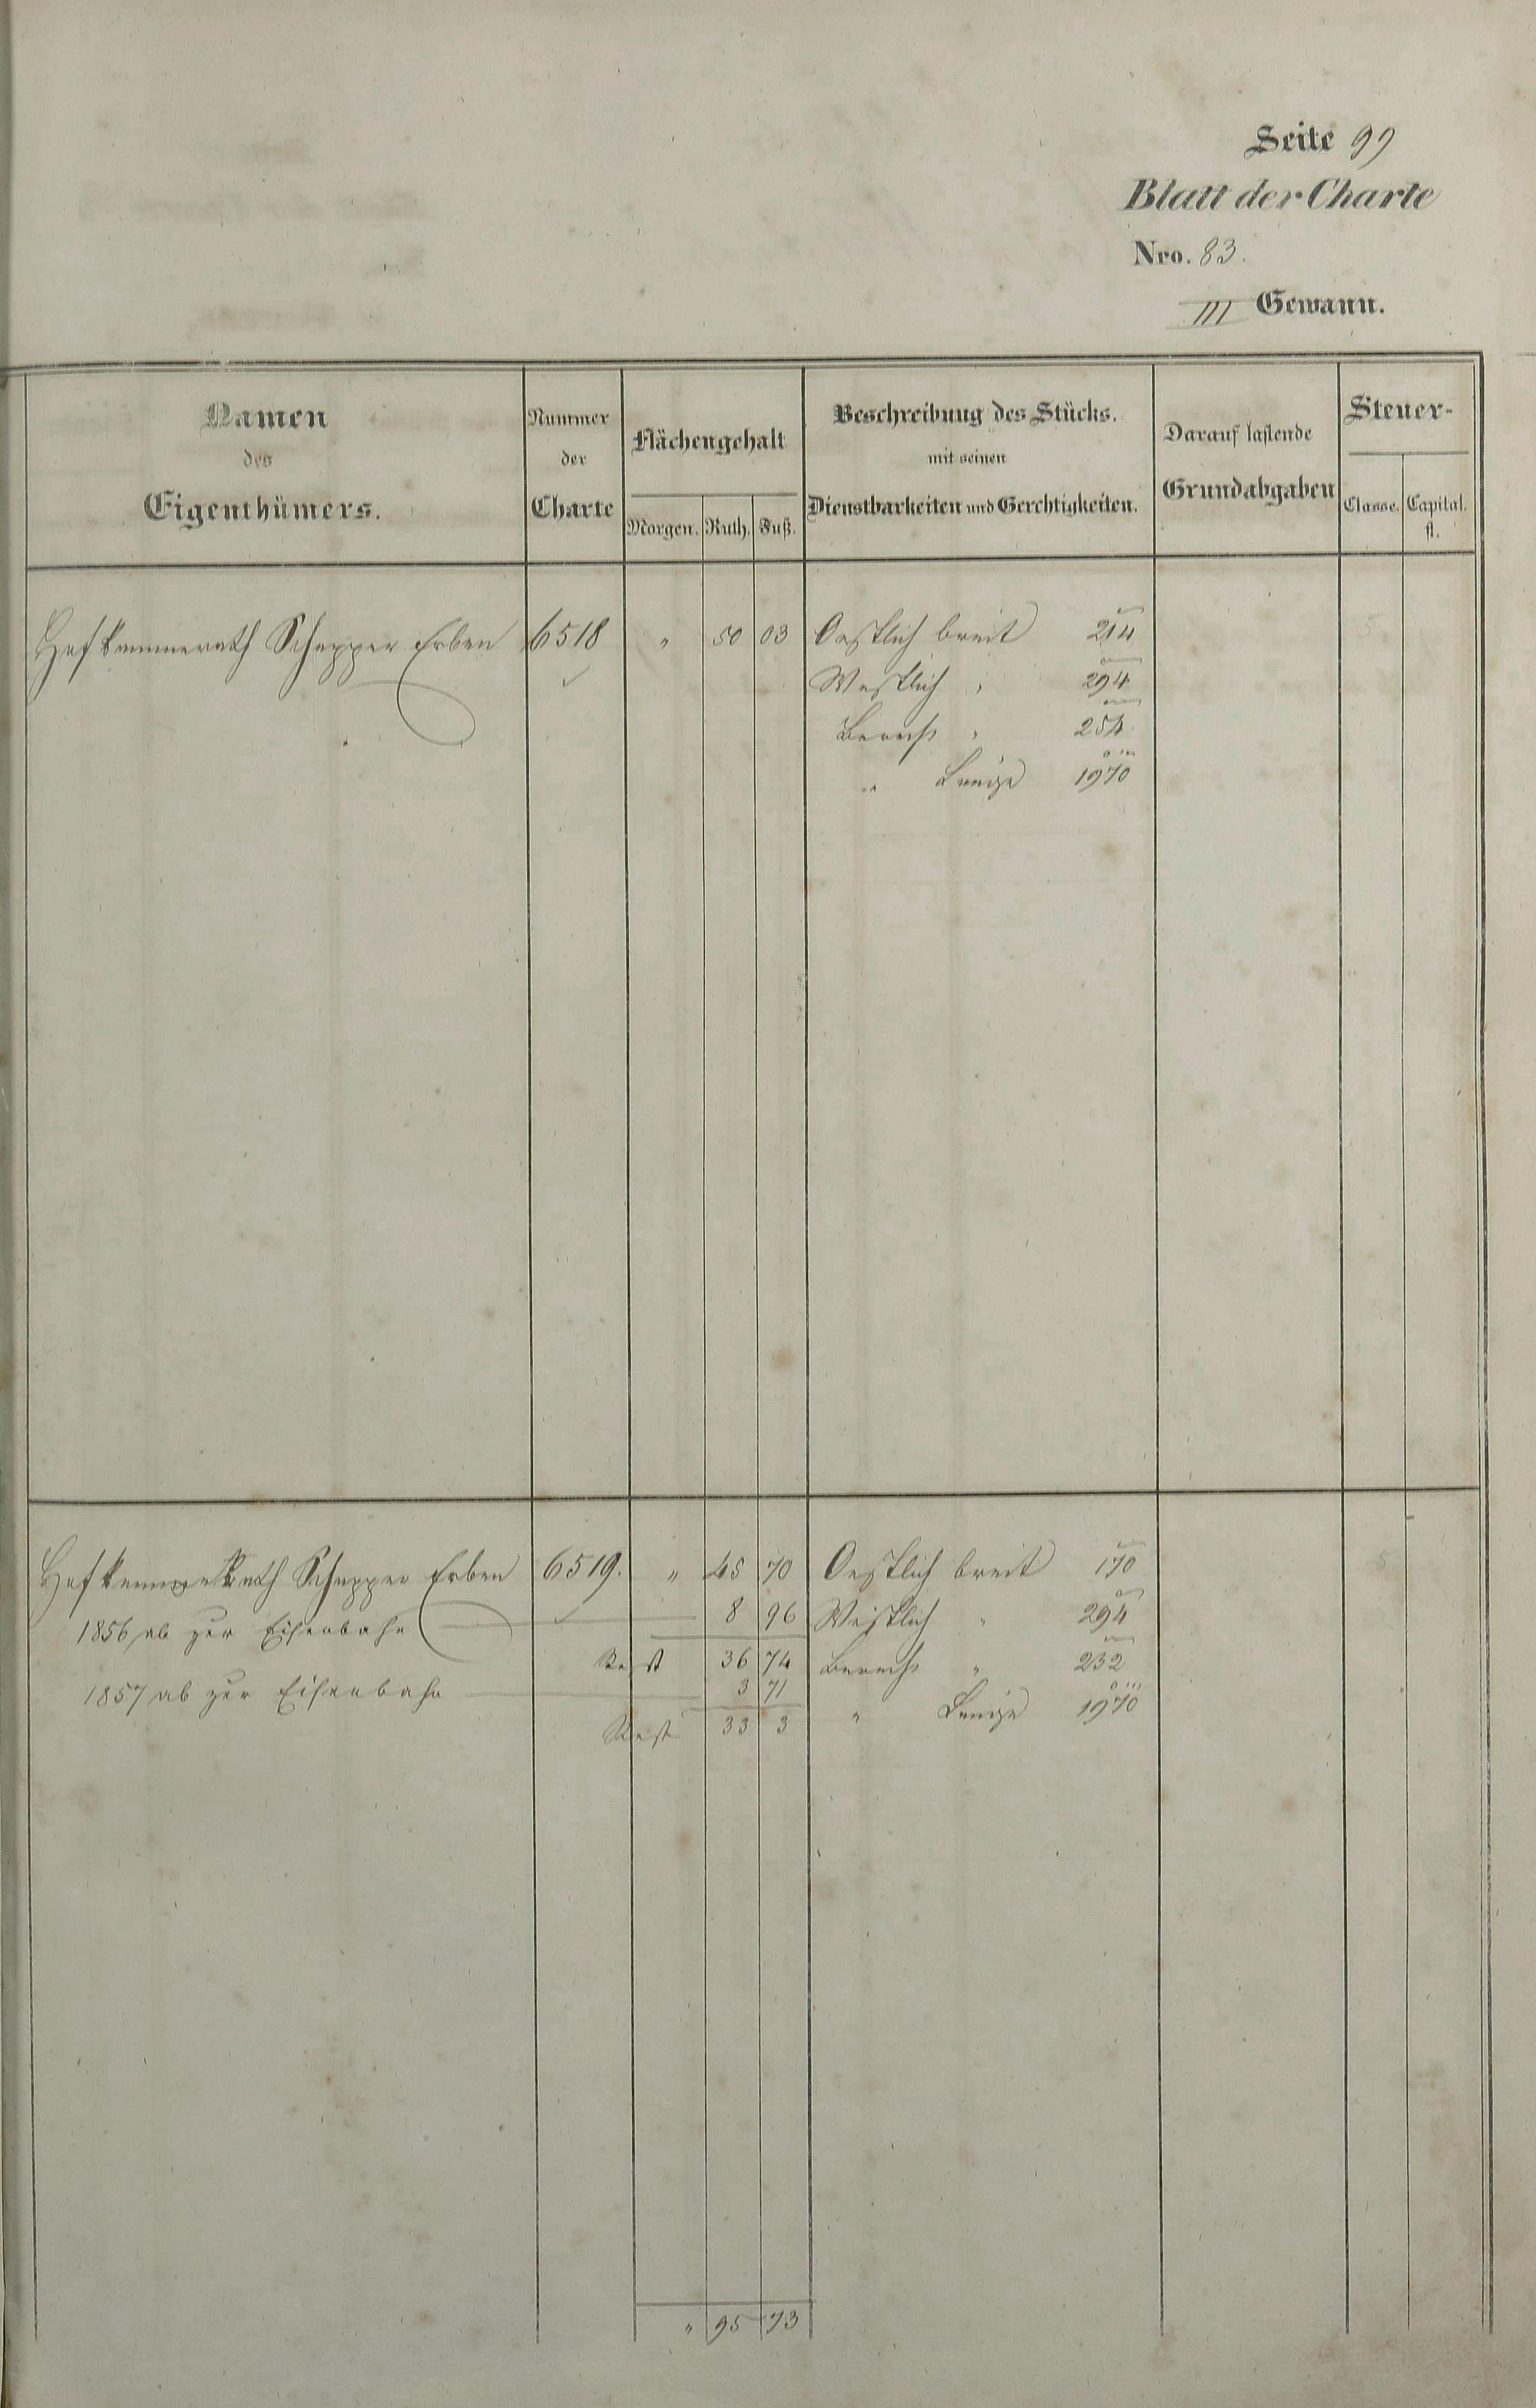 Seite 99
Blatt der Charte
Nro. 83.
III Gewann.
Namen des Eigenthümers.
Nummer der Charte
Flächengehalt
Morgen. Ruth. Fuß.
Beschreibung des Stücks.
mit seinen
Dienstbarkeiten und Gerechtigkeiten.
Darauf lastende
Grundabgaben
Steuer-
Classe. Capital. fl.
Hofkammerath Schepper Erben 6518 " 50 03 Oestlich breit 214
Westlich " 294
Berech " 254
" Länge 1970
Hofkammerrath Schepper Erben 6519. " 45 70 Oestlich breit 170
1856 ab zur Eisenbahn 8 96 Westlich " 294
Rest 36 74 Berech " 232
1857 ab zur Eisenbahn 3 71
" Länge 1970
Rest 33 3
" 95 73